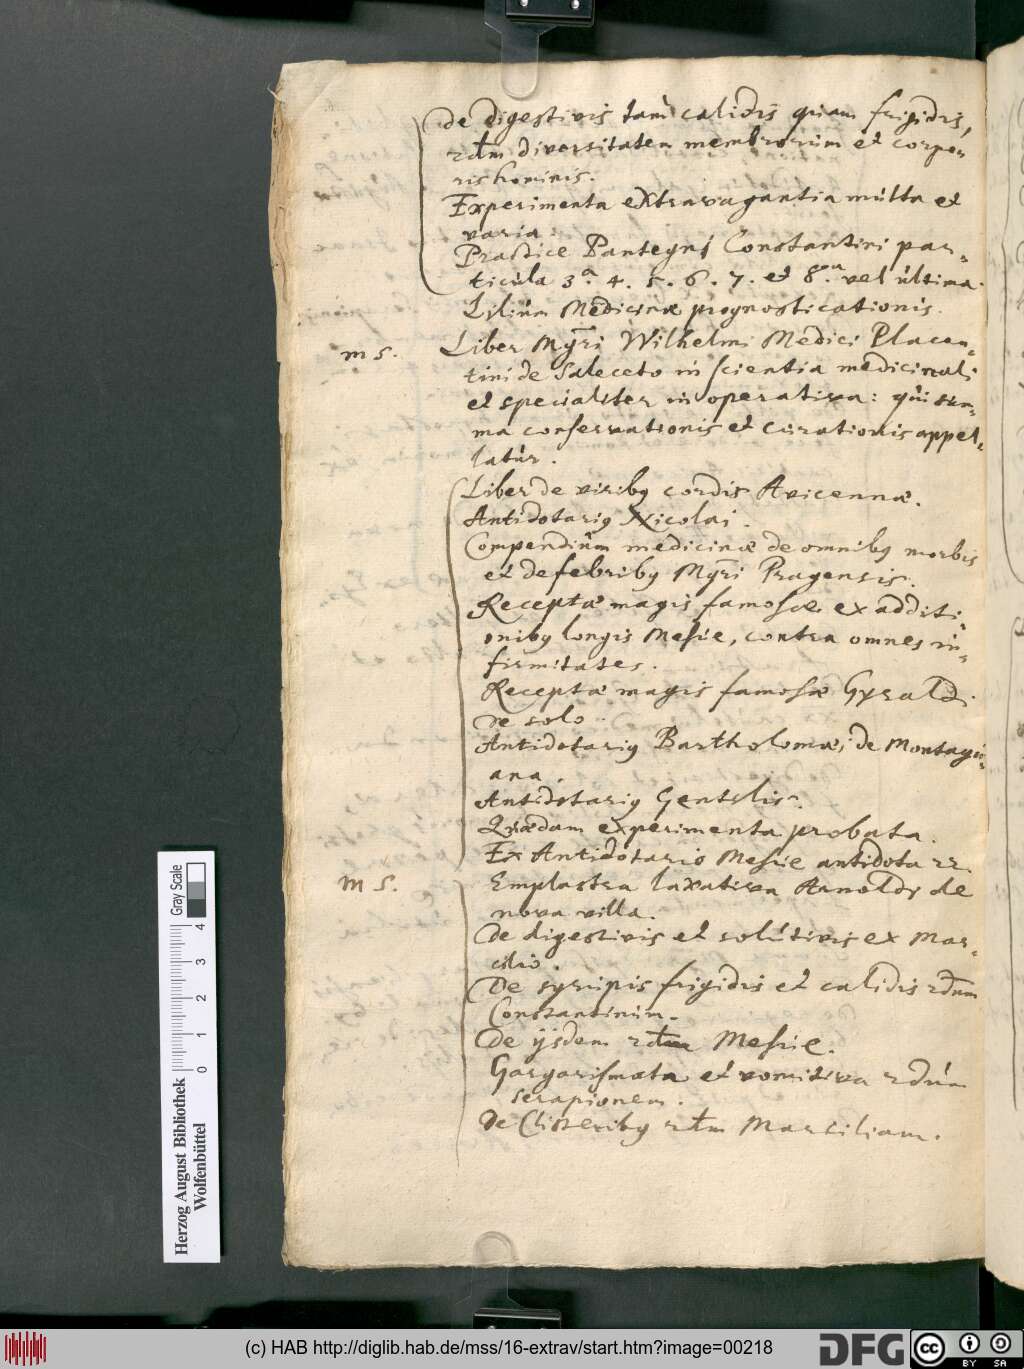 de digestivis tam calidis quam frigidis,
sdm diversitatem membrorum et corpo-
ris hominis.
Experimenta extravagantia multa et
varia.
Practice Pantegni Constantini par-
ticula 3a. 4. 5. 6. 7. et 8.a vel ultima.
Lilium Medicinæ prognosticationis.
ms. Liber Mgri Wilhelmi Medici Placen-
tini de Saleceto in scientia medicinali
et specialiter in operativa: qui sum-
ma conservationis et curationis appel-
latur.
Liber de viriby cordis Avicennæ.
Antidotariy Nicolai.
Compendium medicinæ de omniby morbis
et de febriby Mgri Pragensis.
Receptæ magis famosæ ex additi-
oniby longis Mesue, contra omnes in-
firmitates.
Receptæ magis famosæ Gyraldi
de solo
Antidotariy Bartholomæi de Montagn-
ana.
Antidotariy Gentilis.
Quædam experimenta probata.
Ex Antidotario Mesue antidota 22.
m s. Emplastra laxativa Arnoldy de
nova villa.
De digestivis et solutivis ex Mar-
cilio.
De syrupis frigidis et calidis sdum
Constantinum.
De ijsdem sdum Mesue.
Gargarismata et vomitiva sdum
serapionem.
De Clisteriby sdm Marsiliam.
Herzog August Bibliothek
Wolfenbüttel
0 1 2 3 4
Gray Scale
(c) HAB http://diglib.hab.de/mss/16-extrav/start.htm?image=00218
DFG
cc
BY SA